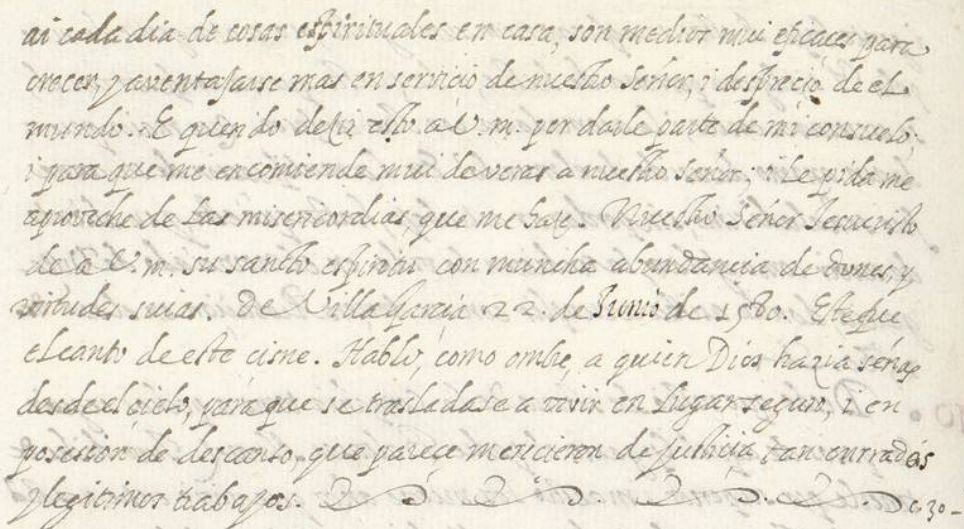 ai cada dia de cosas espirituales en casa, son medios mui eficaces para
crecer, y aventajarse mas en servicio de nuestro Señor, i desprecio de el
mundo. E querido deçir esto a V. m. por darle parte de mi consuelo,
i para que me encomiende mui de veras a nuestro Señor; i le pida me
aproveche de las misericordias, que me haze. Nuestro Señor Jesucristo
de a V. m. su sancto espiritu con muncha abundancia de dones, y
virtudes suias. De Villa Garcia 22. de Junio de 1580. Este fue
el canto de este cisne. Hablo, como ombre, a quien Dios hazia señas
desde el cielo, para que se trasladase a vivir en lugar seguro, i en
posesion de descanso, que parece merecieron de justicia tan onrrados
y legitimos trabajos.
c. 30 -